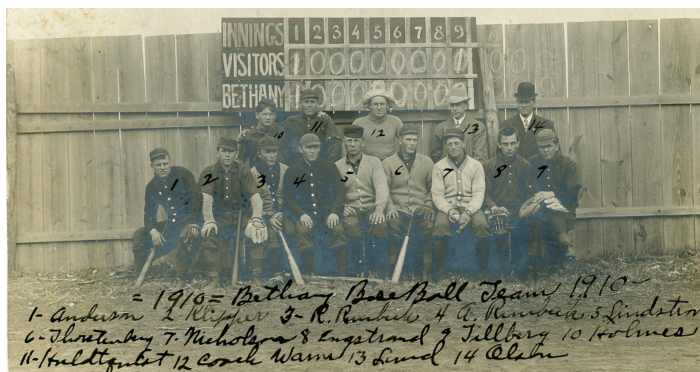 INNINGS 1 2 3 4 5 6 7 8 9
VISITORS 1 0 0 0 0 0 0 0 0
BETHANY 1 0 0 0 0 0 0 0
10 11 12 13 14
1 2 3 4 5 6 7 8 9
= 1910 = Bethany Base Ball Team 1910 -
1- Anderson 2 Klipper 3- R. 4 A. 5 Lindstrom
6- Thorstenberg 7- Nicholson 8 Engstrand 9 Tillberg 10 Holmes
11- Huldtquist 12 Coach 13 Lund 14 Olson